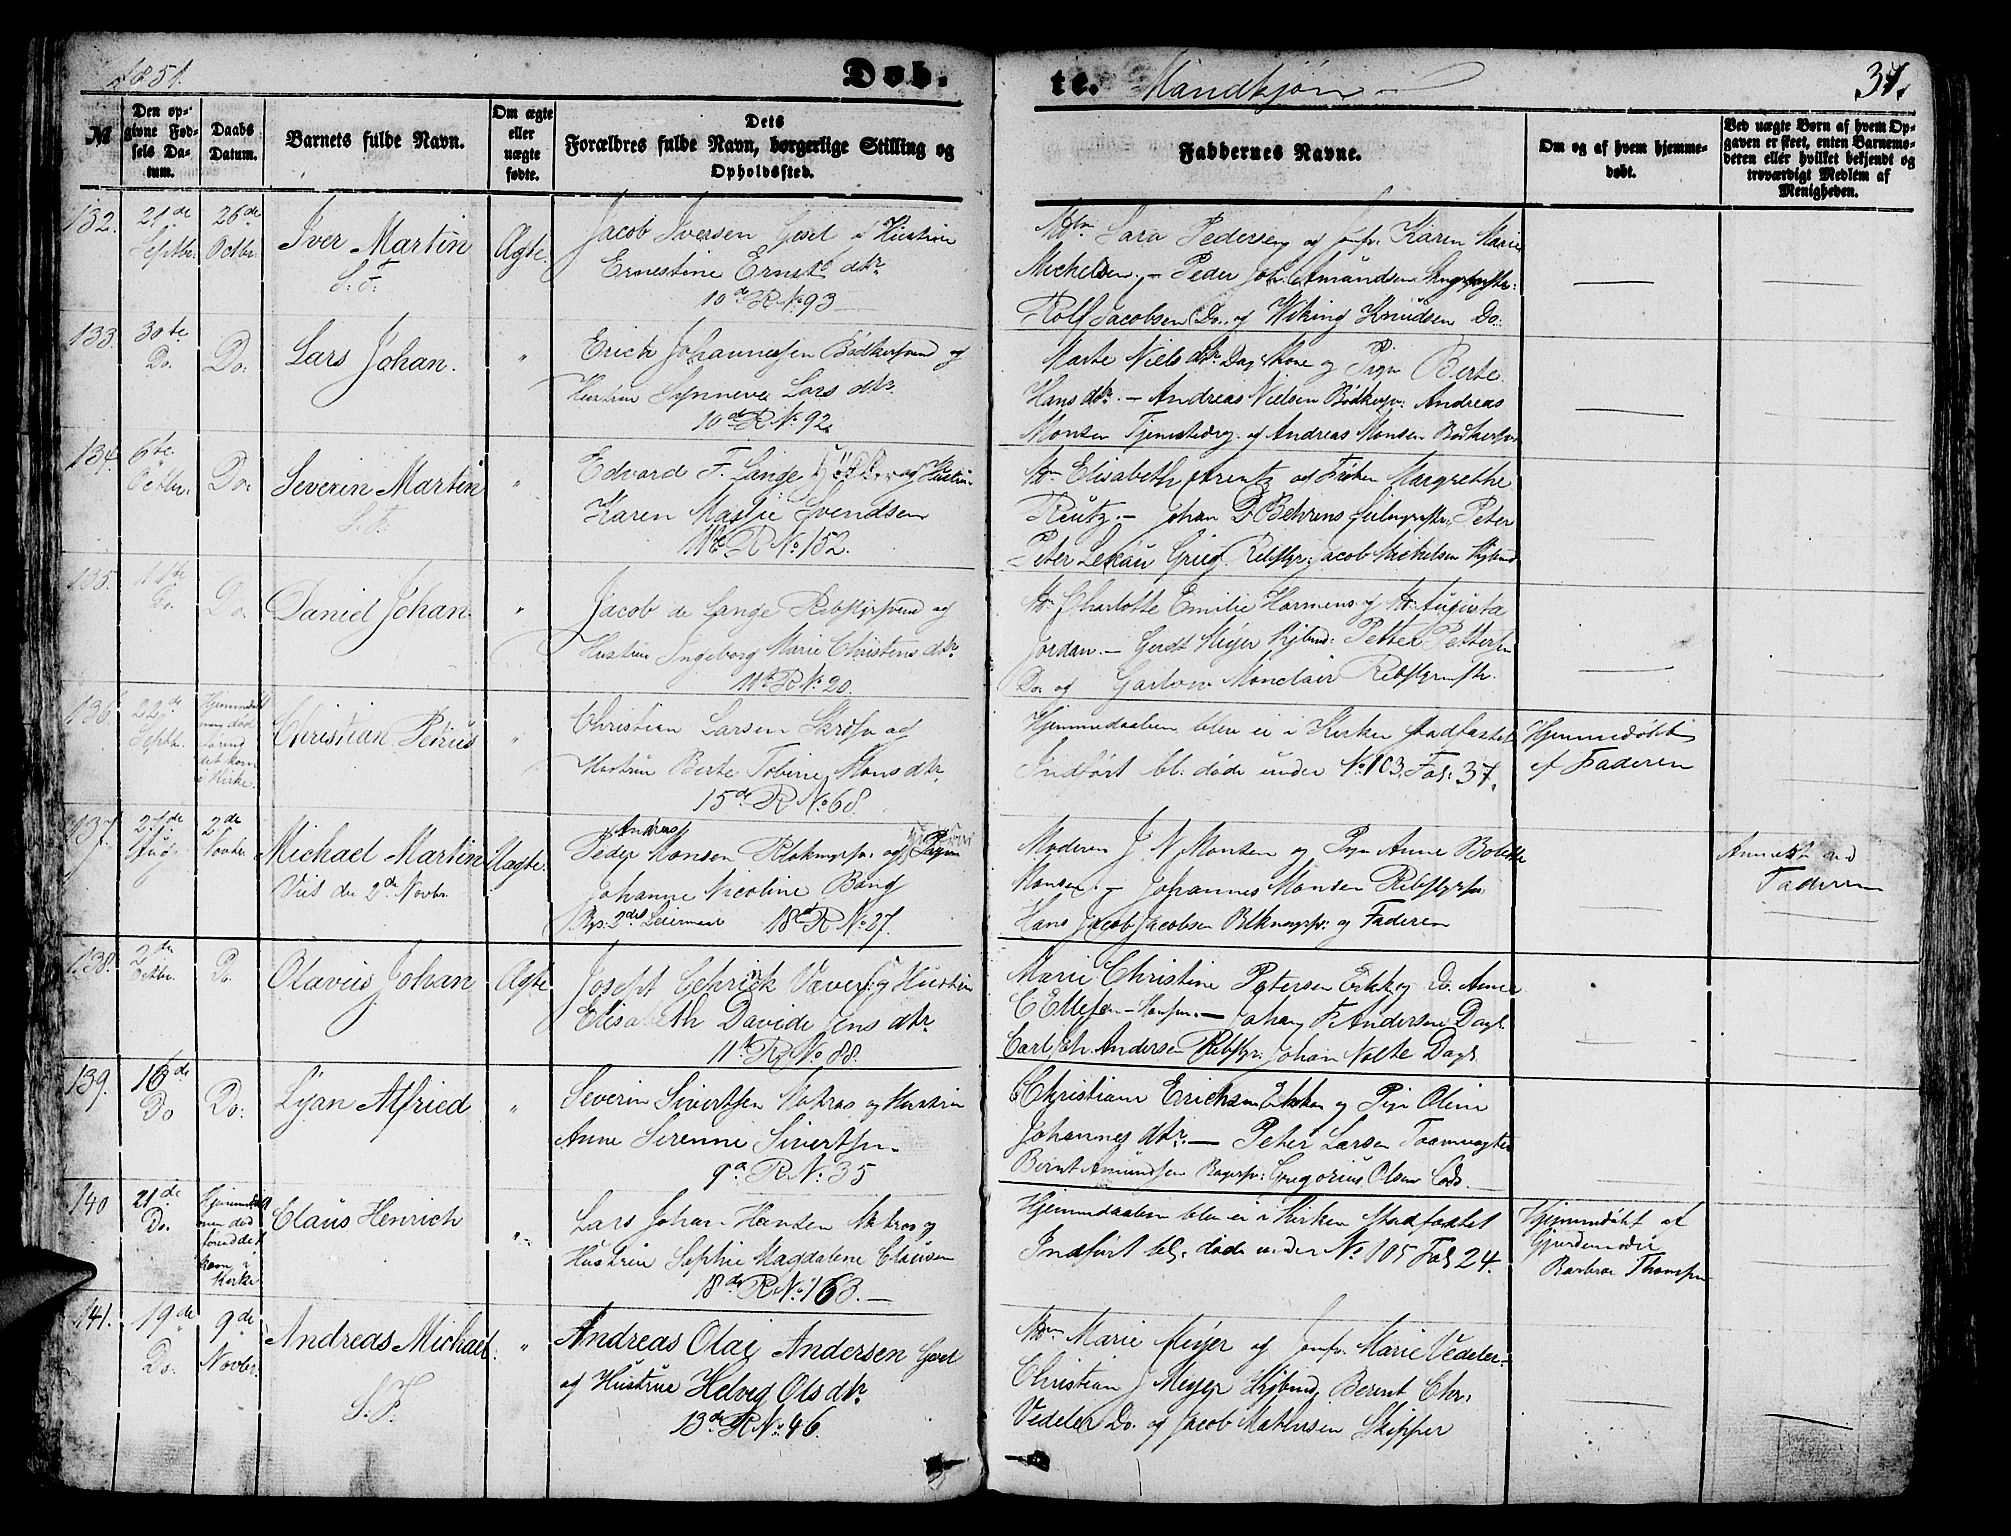 1851.
Døb-
te. Mandkjøn
37.
№
Den op-
givne Fød-
sels Da-
tum.
Daabs
Datum.
Barnets fulde Navn.
Om ægte
eller
uægte
fødte.
Dets
Forældres fulde Navn, borgerlige Stilling og
Opholdssted.
Faddernes Navne.
Om og af hvem hjemme-
døbt.
Ved uægte Børn af hvem Op-
gaven er skeet, enten Barnemo-
deren eller hvilket bekjendt og
troværdigt Medlem af
Menigheden.
132.
21de
Septbr.
26de
Octbr.
Iver Martin
S. F.
Ægte.
Jacob Iversen Gesel & Hustrue
Ernestine Ernst dtr
10de R No 93
Sara Pedersen og Jomfr. Karen Marie
Michelsen. — Peder Joh. Amundsen
Rolf Jacobsen Do. og Wiking Knudsen Do.
133.
30te
Do.
Do.
Lars Johan.
"
Erich Johannessen Bødkersvend og
Hustrue Synneve Lars dtr.
10de R No 92.
Marte Niels dtr. Dag. Kone og Pige Berte
Hans dtr. — Andreas Nielsen Bødkersv. Andreas
Monsen Tjenestedreg. og Andreas Monsen Bødkersv.
134.
6te
Octbr.
Do.
Severin Martin
S. F.
"
Edvard F. Lange og Hustrue
Karen Marie Svendsen
11te R No 152.
Elisabeth Arentz og Frøken Margrethe
Reutz. — Johan D. Behrens Peter
Peter Lexau Grieg Rebslgr. Jacob Michelsen Kjbmd
135.
11te
Do.
Do.
Daniel Johan.
"
Jacob de Lange Rebslgrsvend og
Hustrue Ingeborg Marie Christens dtr.
11te R No 20.
Charlotte Emilie Harmens og Augusta
Jordan. — Gerdt Meyer Kjbmd. Petter Pettersen
Do. og Monclair Rebslgrmstr.
136.
22de
Septbr.
Hjemmedøbt
men døde
førend
det kom
i Kirke.
Christian Petrius
"
Christian Larsen og
Hustrue Berte Tobine Mons dtr.
15de R No 68.
Hjemmedaaben blev ei i Kirken stadfæstet
Indført bl. døde under No 103, Fol. 37.
Hjemmedøbt
af Faderen
137.
21de
Aug.
2de
Novbr.
Michael Martin
Viet de 2de Novbr.
Uægte.
Andreas
Peder Monsen Blokmgsv. og Pigen
Johanne Nicoline Bang
Bgs. 2des Leiermaal 18de R No 27.
Moderen J. N. Monsen og Pige Anne Bolette
Monsen. — Johannes Monsen Rebslgrsv.
Hans Jacob Jacobsen Blkmagsv. og Faderen
Anmeldt ved
Faderen
138.
2de
Octbr.
Do.
Olavius Johan
Ægte
Joseph Gehrick Væver og Hustrue
Elisabeth Davide Jens dtr.
11te R No 88.
Marie Christine Petersen Enke og Do. Anne
C Ellefsen — Johan F. Andersen Dagl.
Carl Joh. Andersen Rebslgr. Johan Nolte Dagl.
139.
16de
Do
Do.
Lyan Alfried
"
Severin Sivertsen Matros og Hustrue
Anne Serenne Sivertsen
9de R No 35
Christiane Erichsen Enke og Pige Oline
Johannes dtr. — Peter Larsen Toamvagter
Bernt Amundsen Bagersv. Gregorius Olsen
140
21de
Do.
Hjemmedøbt
men død
førend det
kom i
Kirke
Claus Henrich
"
Lars Johan Hansen Matros og
Hustrue Sophie Magdalene Clausen
18de R No 163. —
Hjemmedaaben blev ei i Kirken stadfæstet
Indført bl. døde under No 105 Fol 24.
Hjemmedøbt af
Gjordemoder
Barbroe Thomsen
141.
19de
Do.
9de
Novbr.
Andreas Michael.
S. F.
"
Andreas Olai Andersen Gesel
og Hustrue Helvig Ols dtr.
13de R No 46.
Marie Meyer og Jomfr. Marie Vedeler —
Christian J. Meyer Kjbmd, Berent Chr.
Vedeler Do. og Jacob Mathesen Skipper